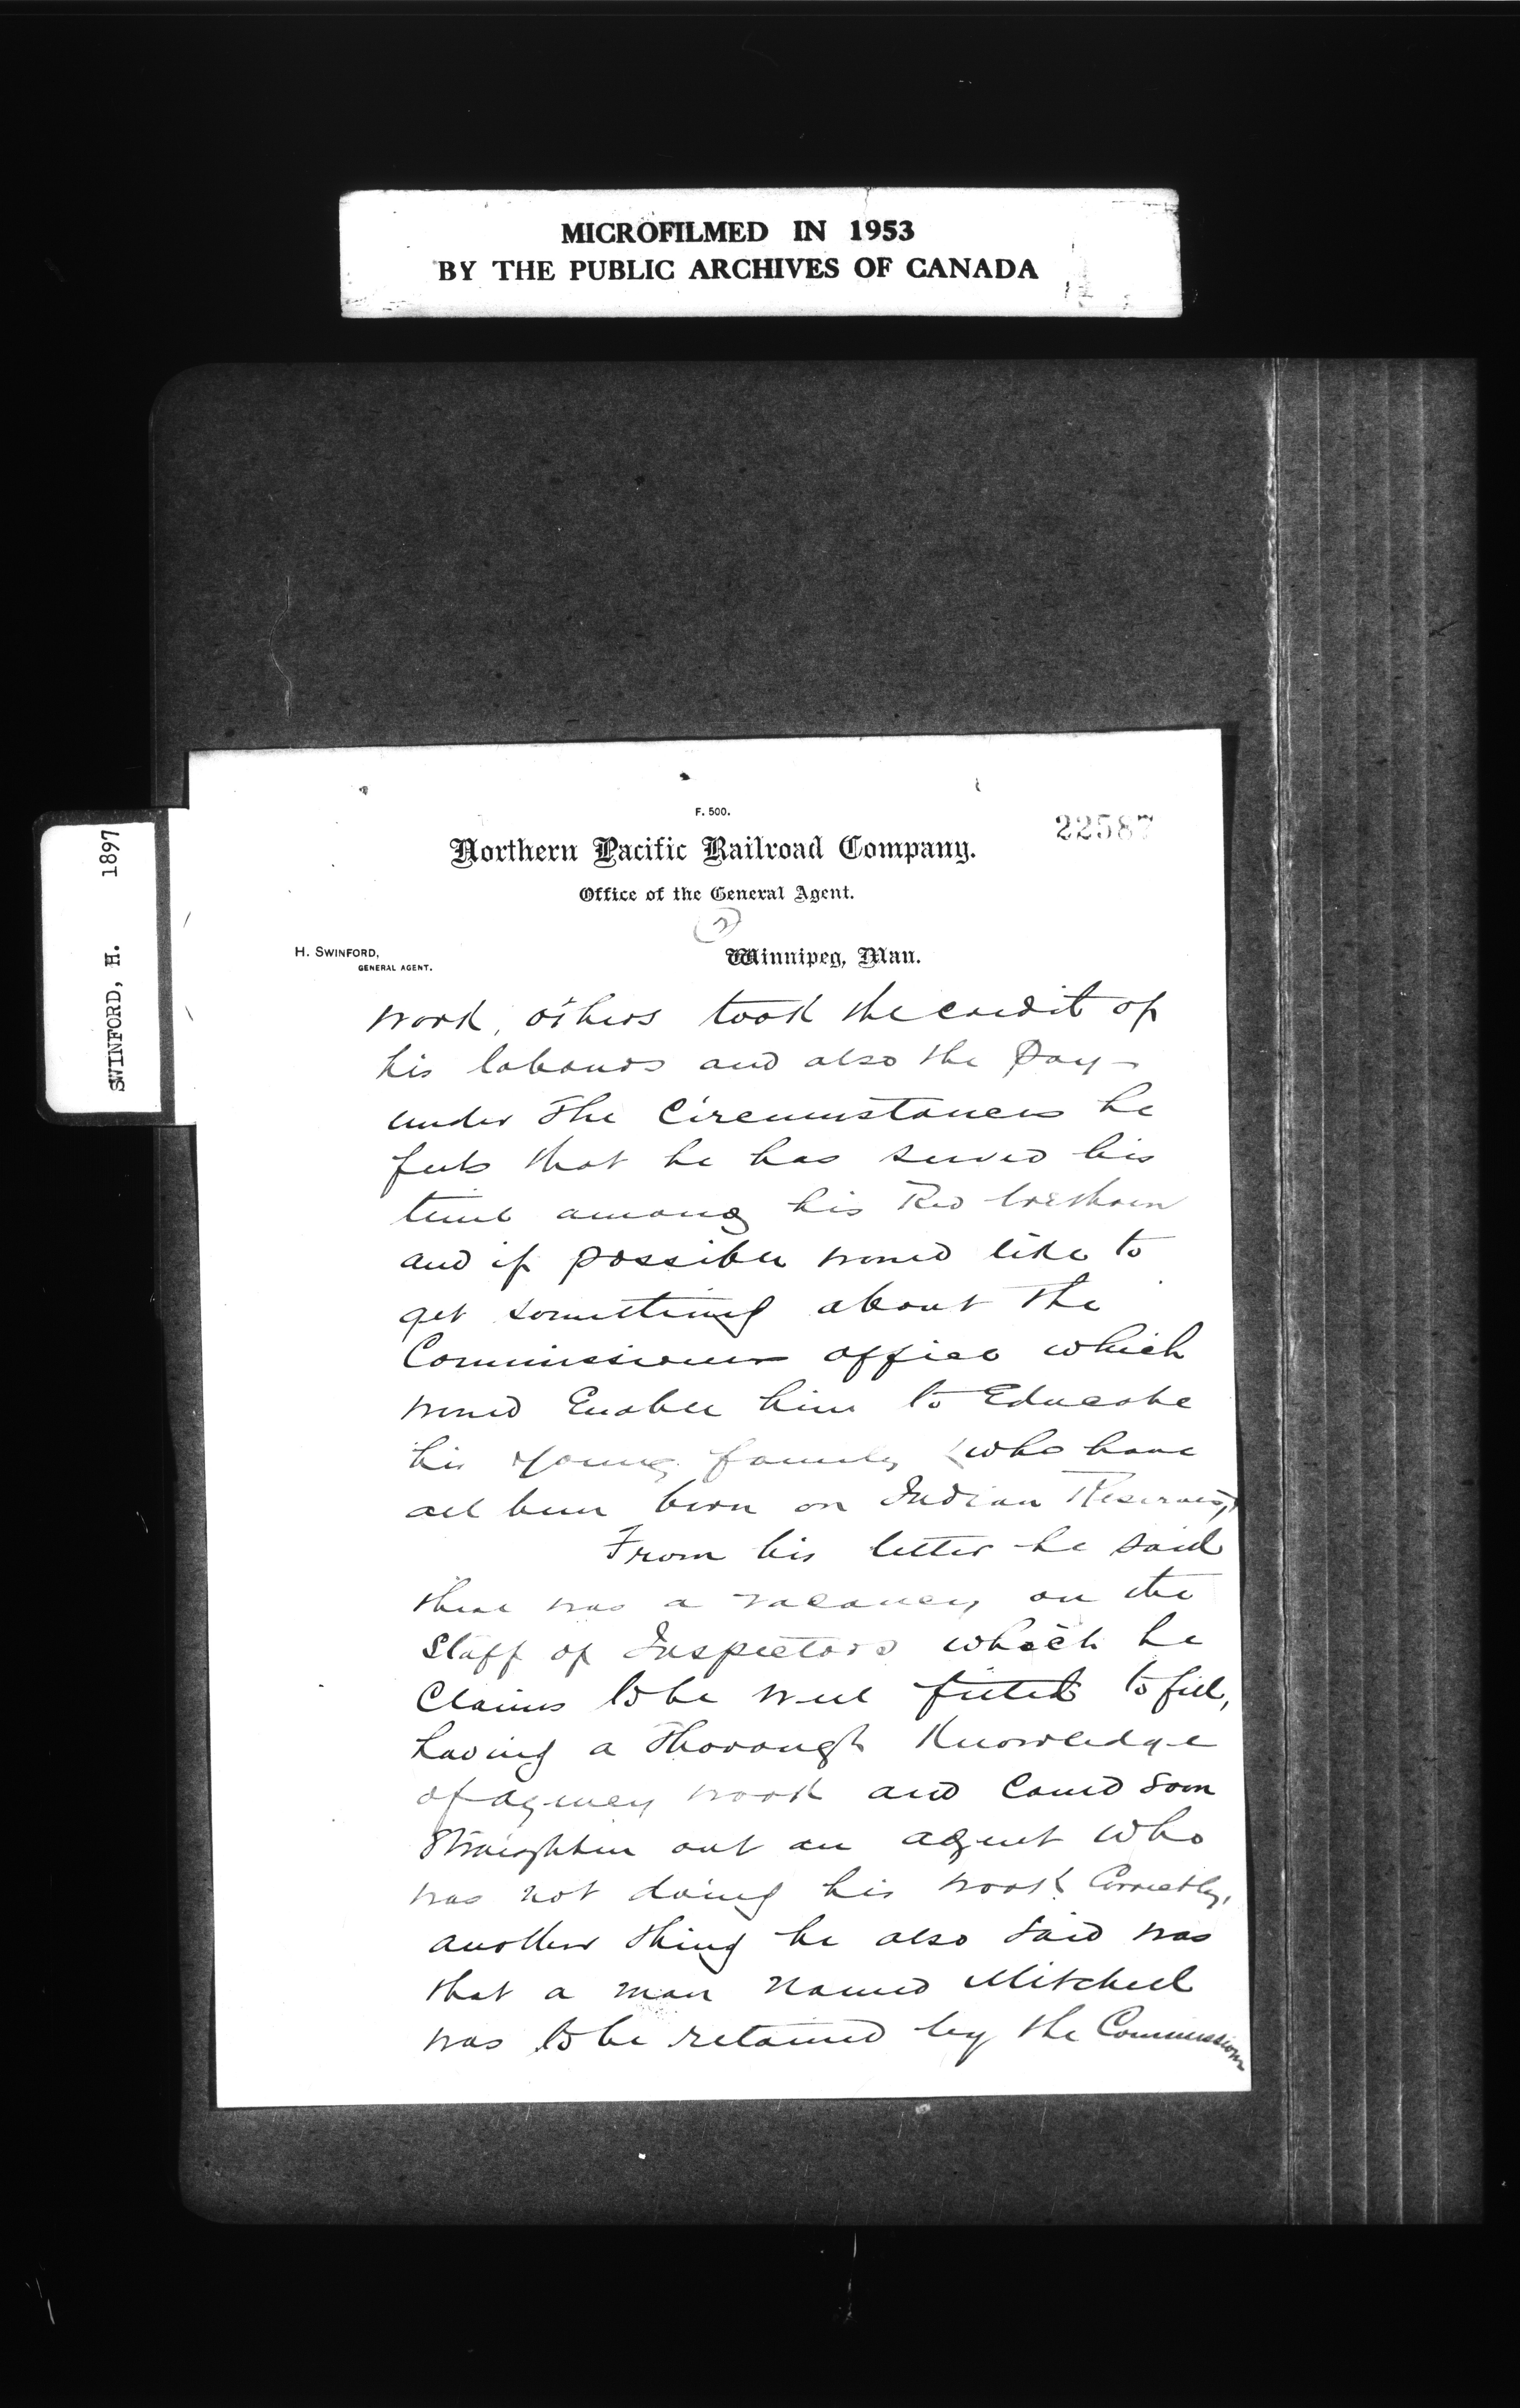 MICROFILMED IN 1953
BY THE PUBLIC ARCHIVES OF CANADA
SWINFORD, H. 1897
F. 500.
22587
Northern Pacific Railroad Company.
Office of the General Agent.
(2)
H. SWINFORD,
GENERAL AGENT.
Winnipeg, Man.
work, others took the credit of
his labours and also the Pay -
under the Circumstances he
feels that he has served his
time among his Red brethren
and if possible would like to
get something about the
Commissioners office which
would Enable him to Educate
his young family (who have
all been born on Indian Reserves)
From his letter he said
there was a vacancy on the
Staff of Inspectors which he
Claims to be well fitted to fill,
having a thorough Knowledge
of agency work and Could soon
Straighten out an agent who
was not doing his work Correctly,
another thing he also said was
that a man named Mitchell
was to be retained by the Commissioner